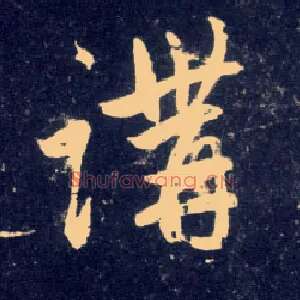 講
Shufawang.cn